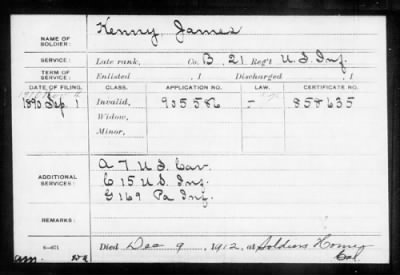 NAME OF SOLDIER: Kenny, James
SERVICE: Late rank, Co. B, 21 Reg't U.S. Inf.
TERM OF SERVICE: Enlisted , 1 Discharged , 1
DATE OF FILING. CLASS. APPLICATION NO. LAW. CERTIFICATE NO.
1890 Sep. 1 Invalid, 905586 - 858635
Widow,
Minor,
ADDITIONAL SERVICES:
A 7 U.S. Cav.
C 15 U.S. Inf.
G 169 Pa Inf.
REMARKS:
6-071 Died Dec 9, 1912, at Soldiers Home,
Cal.